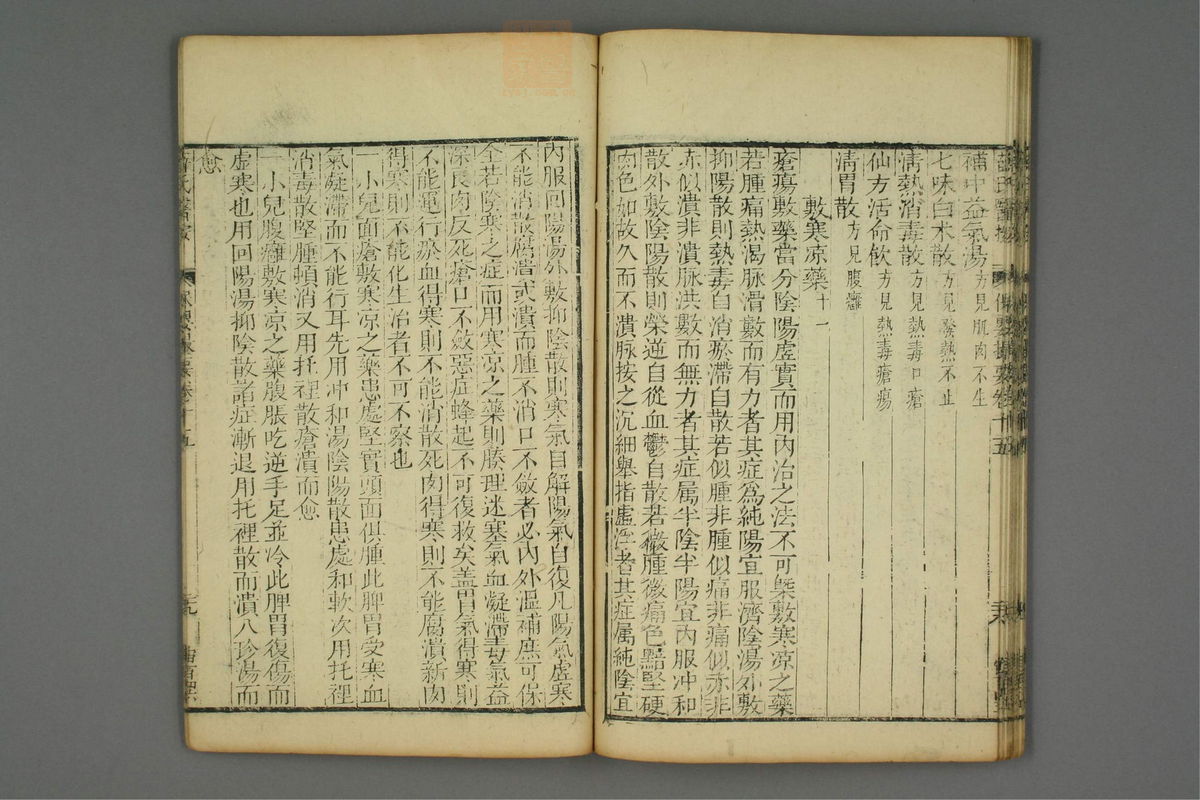 補中益氣湯方見肌肉不生
七味白术散方見發熱不止
清熱消毒散方見熱毒口瘡
仙方活命飲方見熱毒瘡瘍
清胃散方見腹癰
敷寒凉藥十一
瘡瘍敷藥當分陰陽虛實而用內治之法不可槩敷寒凉之藥
若腫痛熱渴脉滑數而有力者其症爲純陽宜服濟陰湯外敷
抑陽散則熱毒自消瘀滯自散若似腫非腫似痛非痛似赤非
赤似潰非潰脉洪數而無力者其症属半陰半陽宜內服冲和
散外敷陰陽散則榮逆自從血鬱自散若微腫微痛色黯堅硬
肉色如故久而不潰脉按之沉細舉指虛浮者其症属純陰宜
內服回陽湯外敷抑陰散則寒氣自解陽氣自復凡陽氣虛寒
不能消散腐潰或潰而腫不消口不斂者必內外溫補庶可保
全若陰寒之症而用寒凉之藥則腠理迷塞氣血凝滯毒氣益
深良肉反死瘡口不斂惡症蜂起不可復救矣蓋胃氣得寒則
不能運行瘀血得寒則不能消散死肉得寒則不能腐潰新肉
得寒則不能化生治者不可不察也
一小兒面瘡敷寒凉之藥患處堅實頭面俱腫此脾胃受寒血
氣凝滯而不能行耳先用冲和湯陰陽散患處和軟次用托裡
消毒散堅腫頓消又用托裡散瘡潰而愈
一小兒腹癰敷寒凉之藥腹脹吃逆手足並冷此脾胃復傷而
虛寒也用回陽湯抑陰散諸症漸退用托裡散而潰八珍湯而
愈